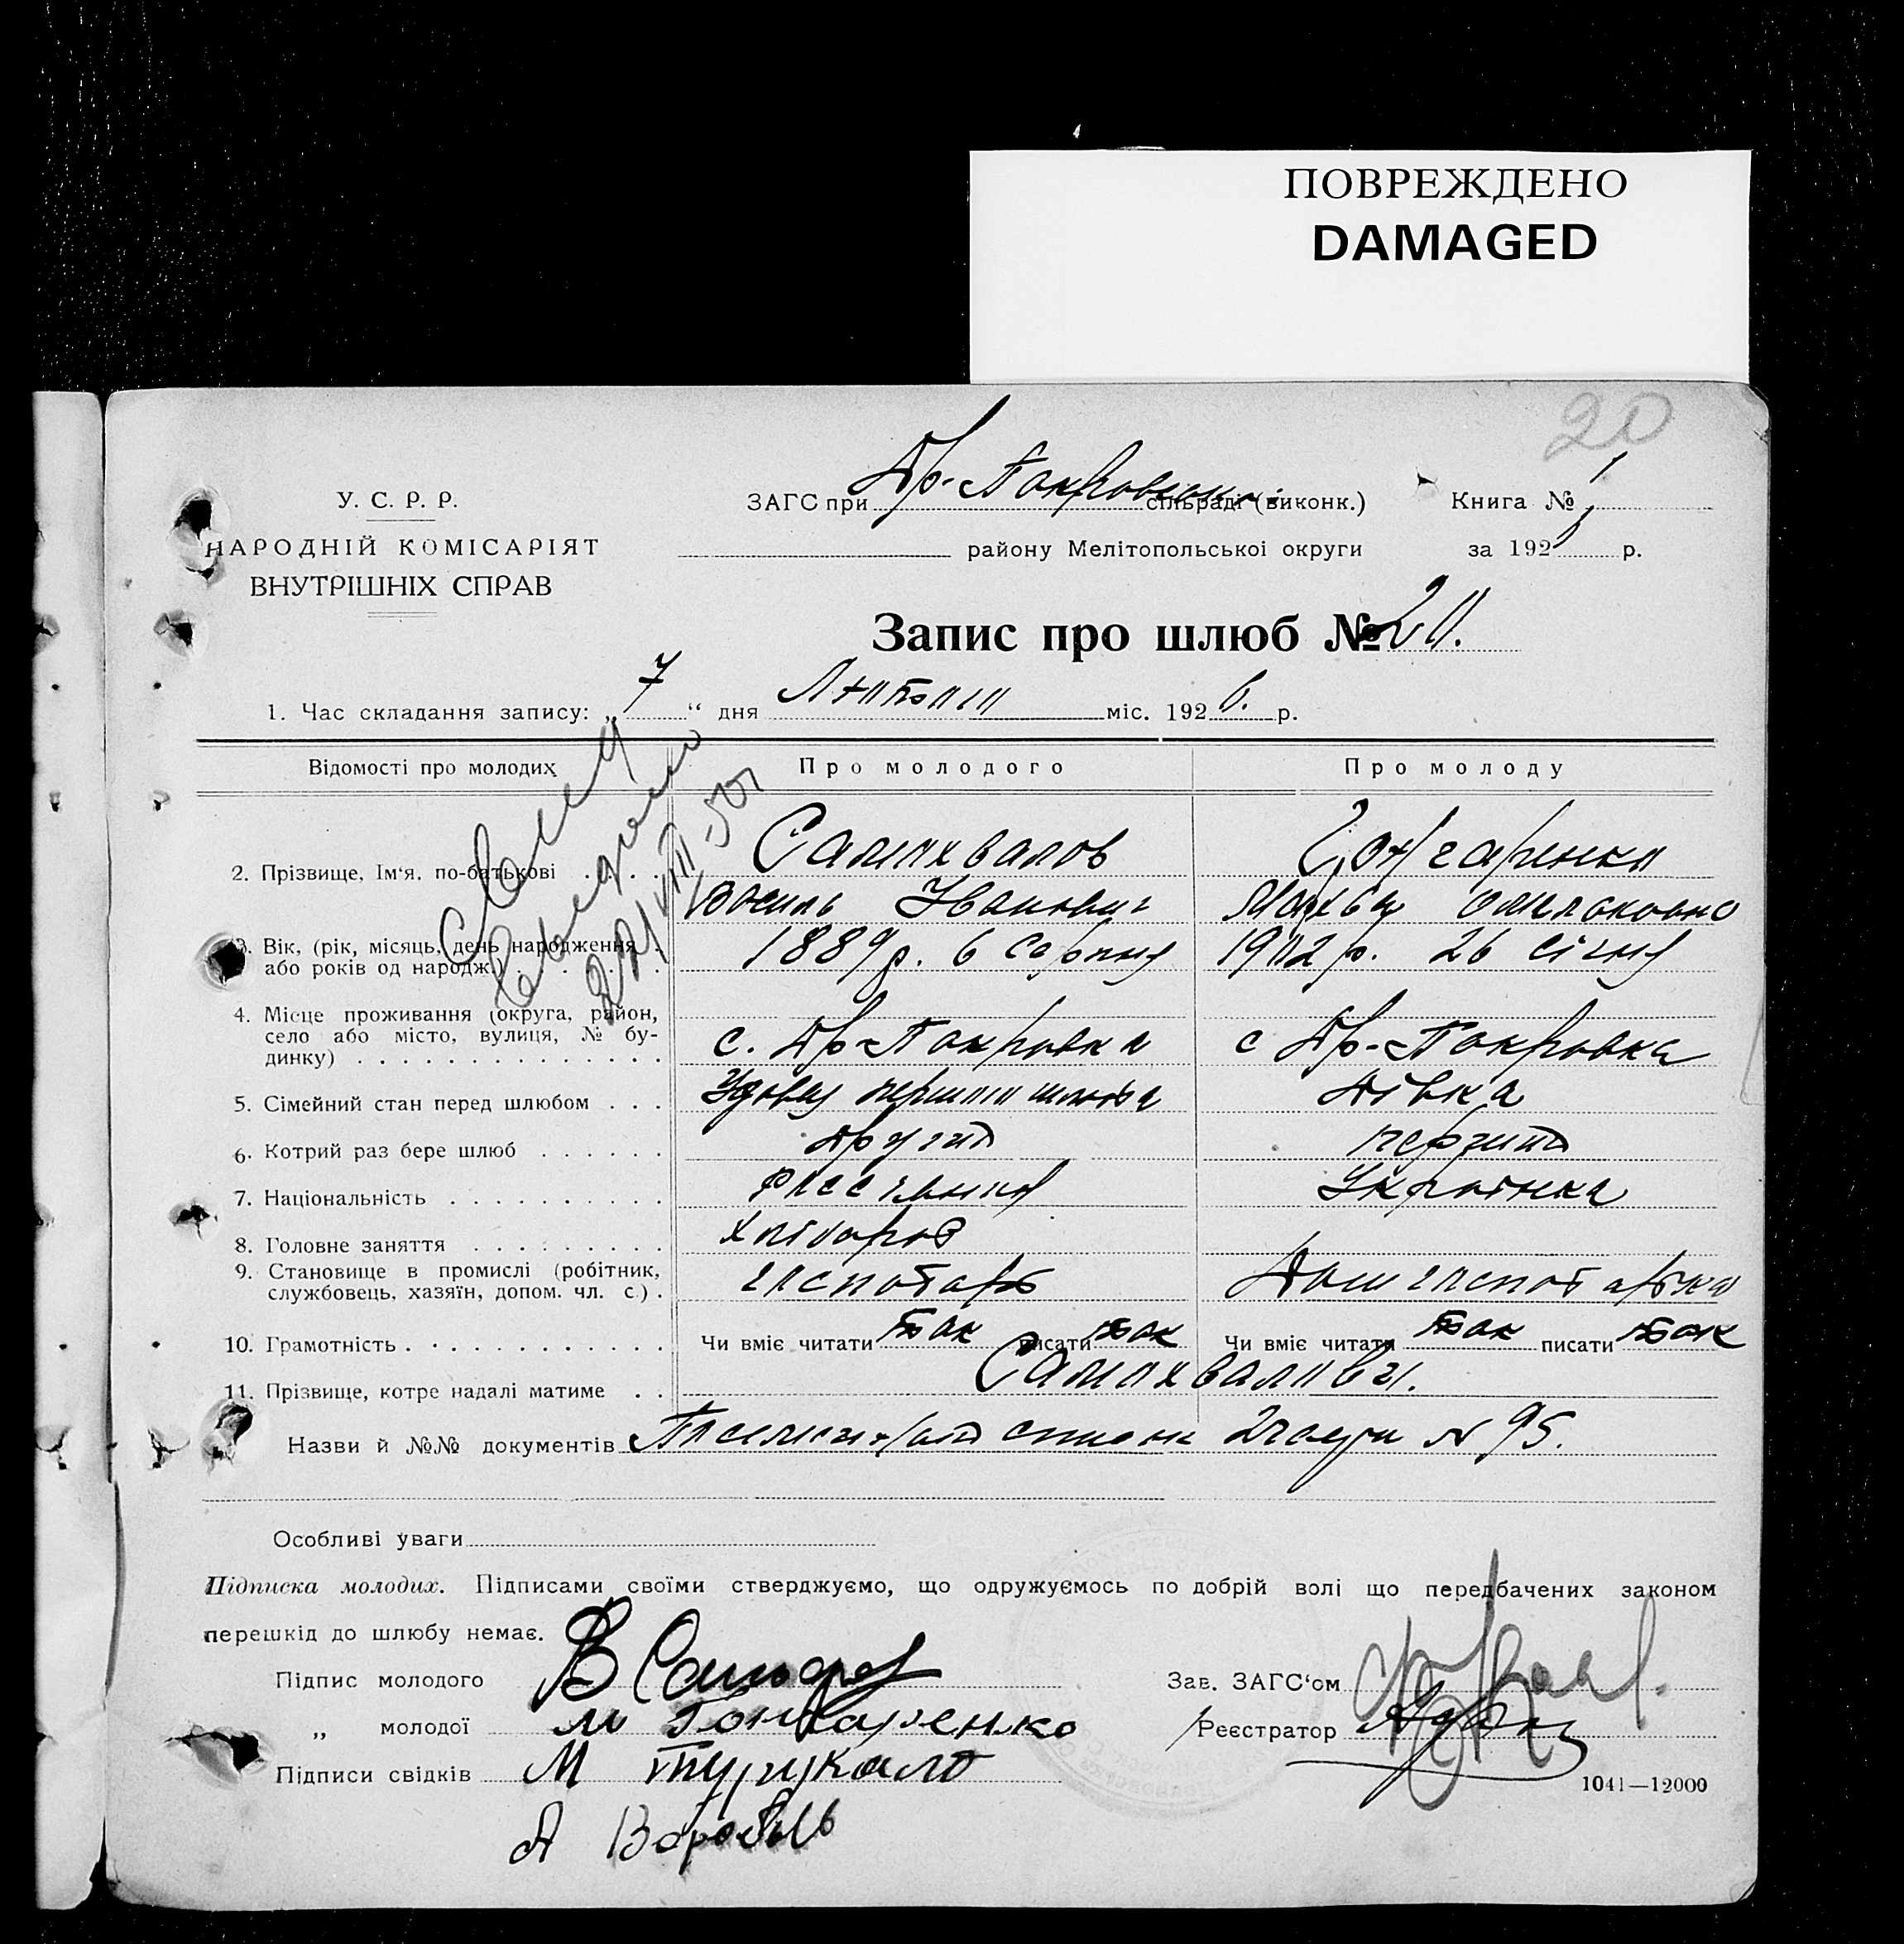 ПОВРЕЖДЕНО
DAMAGED
20
У. С. Р. Р.
НАРОДНІЙ КОМІСАРІЯТ
ВНУТРІШНІХ СПРАВ
ЗАГС при Др-Покровськ сільраді (виконк.)
Книга № 1
району Мелітопольської округи
за 1926 р.
Запис про шлюб № 20.
1. Час складання запису: „ 7 “ дня Лютого міс. 1926. р.
Відомості про молодих
Про молодого
Про молоду
2. Прізвище, Ім‘я, по-батькові . . . .
Самохвалов
Гончаренко
Василь Іванович
3. Вік, (рік, місяць, день народження . або років од народж.) . . . . .
1889 р. 6 Серпня
1902 р. 26 січня
4. Місце проживання (округа, район,
село або місто, вулиця, № бу-
динку) . . . . . . . . . . . . . .
с. Др-Покровка
с Др.-Покровка
5. Сімейний стан перед шлюбом . . .
Удовец першого шлюба
Дівка
6. Котрий раз бере шлюб . . . . . .
другий
перший
7. Національність . . . . . . . . . .
Українка
8. Головне заняття . . . . . . . . .
хлібороб
9. Становище в промислі (робітник,
службовець, хазяїн, допом. чл. с.) .
господарь
Дом господарка
10. Грамотність . . . . . . . . . . . .
Чи вміє читати так писати так
Чи вміє читати так писати так
11. Прізвище, котре надалі матиме . .
Самохвалови.
Назви й №№ документів Посемейний список 2 часу № 95.
Особливі уваги
Підписка молодих. Підписами своїми стверджуємо, що одружуємось по добрій волі що передбачених законом
перешкід до шлюбу немає.
Підпис молодого В
Зав. ЗАГС‘ом
„ молодої М Гончаренко
Реєстратор
Підписи свідків М Турукало
1041—12000
А Воробьь